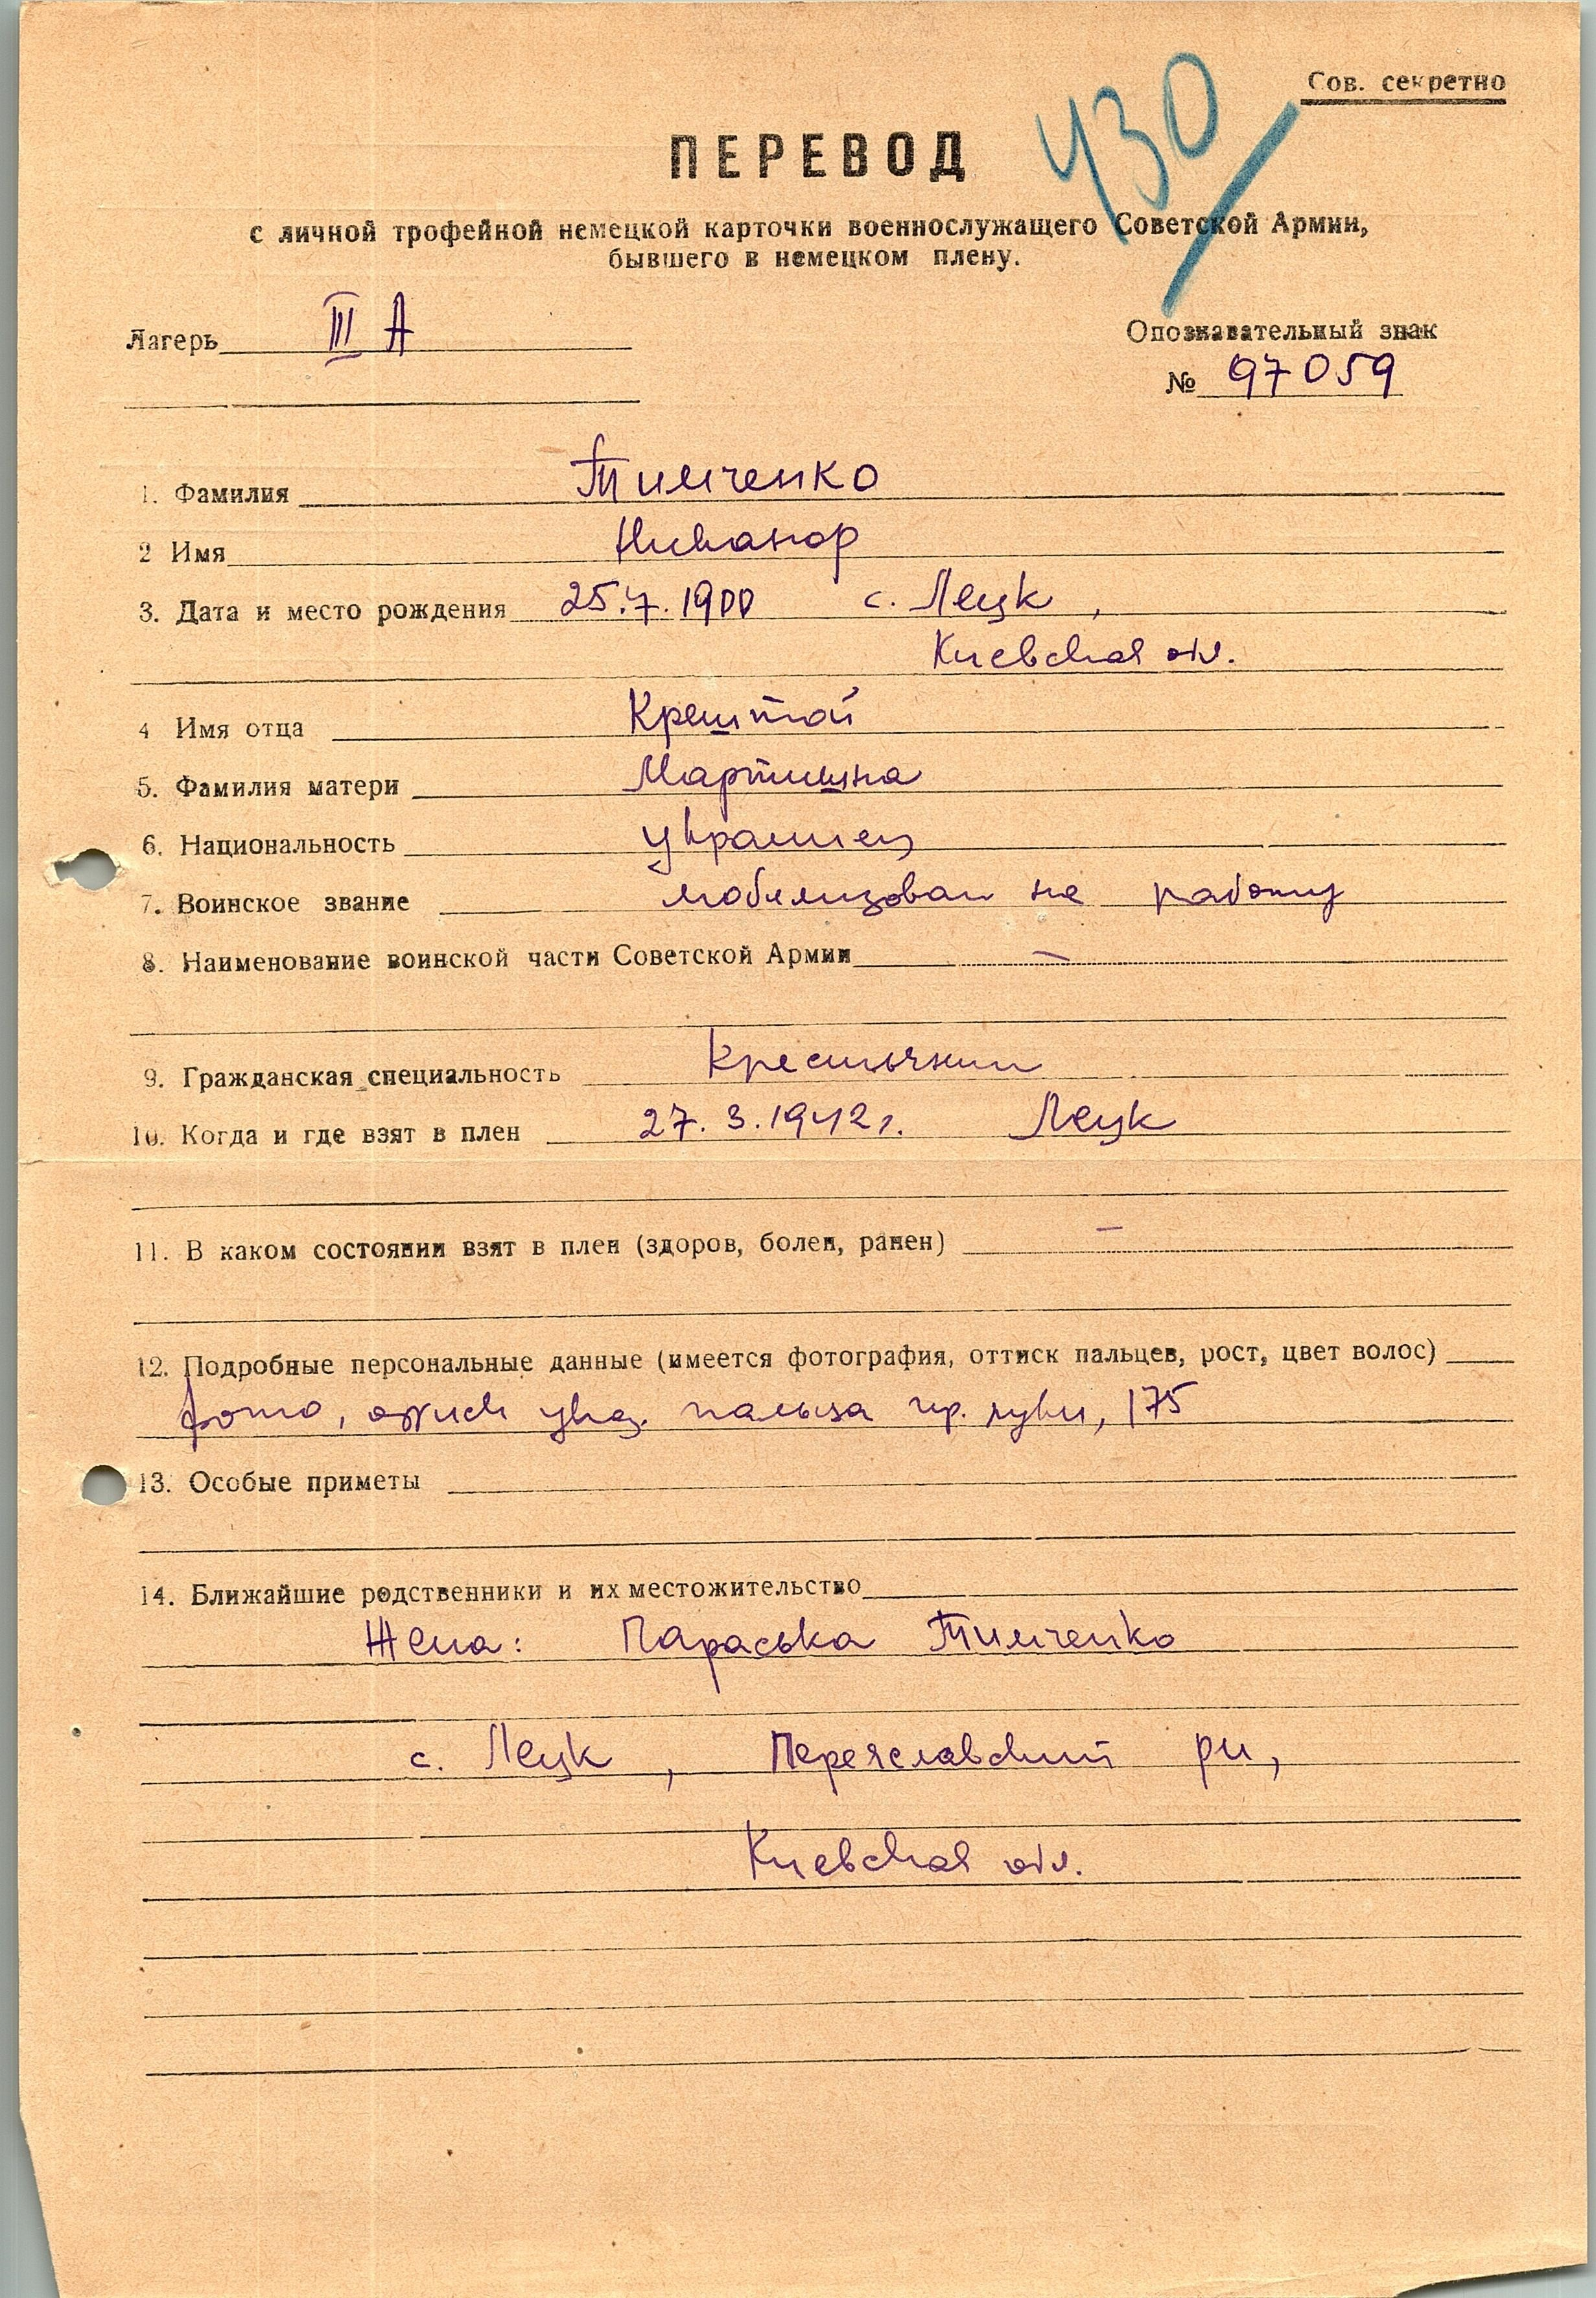 Сов. секретно
430
ПЕРЕВОД
с личной трофейной немецкой карточки военнослужащего Советской Армии,
бывшего в немецком плену.
Лагерь III А
Опознавательный знак
№ 97059
1. Фамилия Тимченко
2 Имя Никанор
3. Дата и место рождения 25.7.1900 с. Лецк,
Киевская обл.
4 Имя отца Крештой
5. Фамилия матери Мартишна
6. Национальность украинец
7. Воинское звание мобилизован на работу
8. Наименование воинской части Советской Армии —
9. Гражданская специальность крестьянин
10. Когда и где взят в плен 27.3.1942г. Лецк
11. В каком состоянии взят в плен (здоров, болен, ранен) —
12. Подробные персональные данные (имеется фотография, оттиск пальцев, рост, цвет волос)
фото, оттиск указ. пальца пр. руки, 175
13. Особые приметы
14. Ближайшие родственники и их местожительство
Жена: Параська Тимченко
с. Лецк, Переяславский рн,
Киевская обл.